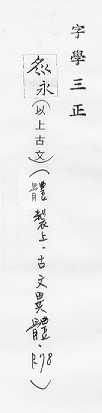 字學三正
永(以上古文)(體製上·古文異體·P.78)